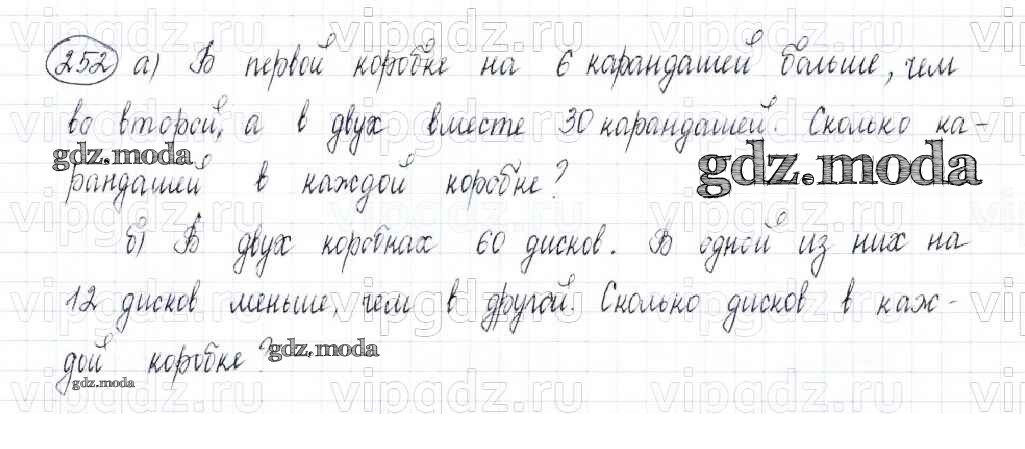 252 а) В первой коробке на 6 карандашей больше, чем
во второй, а в двух вместе 30 карандашей. Сколько ка-
рандашей в каждой коробке?
б) В двух коробках 60 дисков. В одной из них на
12 дисков меньше, чем в другой. Сколько дисков в каж-
дой коробке?
gdz.moda
gdz.moda
gdz.moda
gdz.moda
vipgdz.ru